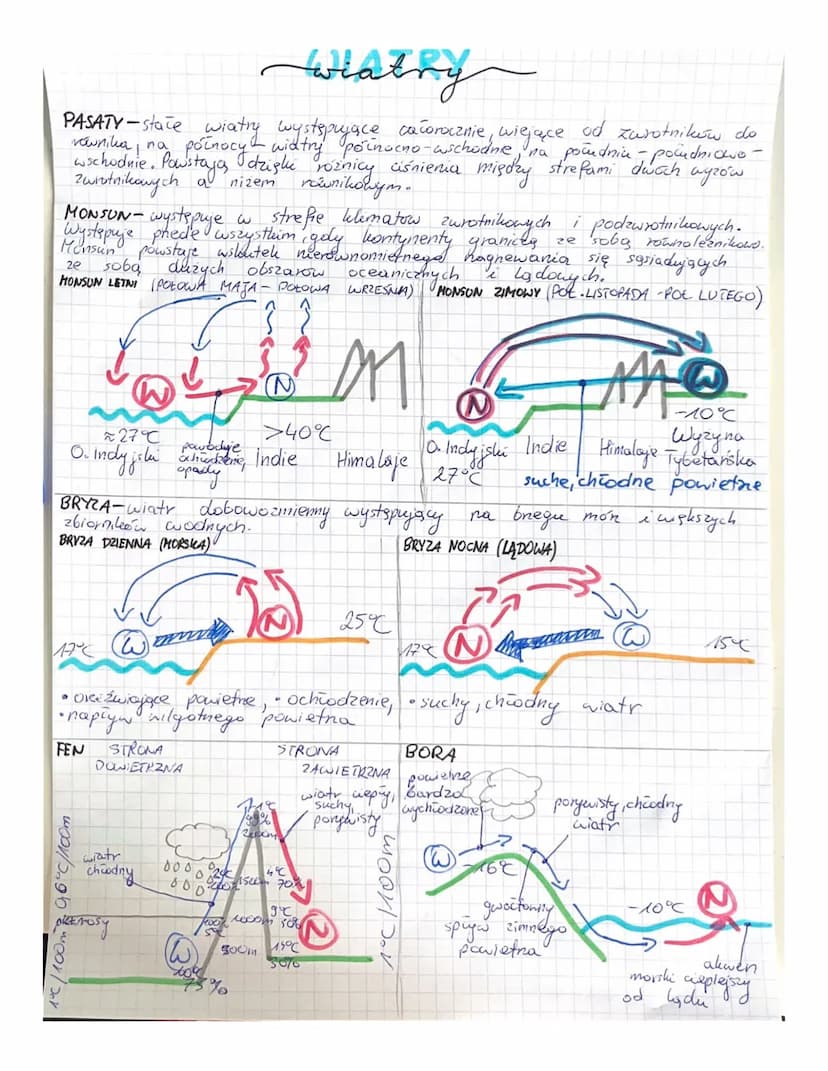 WIATRY
wiatry
PASATY – stałe wiatry występujące całorocznie, wiejące od zwrotników do
równika, na północy – wiatry północno-wschodnie, na południu – południowo-
wschodnie. Powstają dzięki różnicy ciśnienia między strefami dwóch wyżów
zwrotnikowych a niżem równikowym.
MONSUN – występuje w strefie klimatów zwrotnikowych i podzwrotnikowych.
Występuje przede wszystkim, gdy kontynenty graniczą ze sobą równoleżnikowo.
Monsun powstaje wskutek nierównomiernego nagrzewania się sąsiadujących
ze sobą dużych obszarów oceanicznych i lądowych.
MONSUN LETNI (POŁOWA MAJA – POŁOWA WRZEŚNIA)
W
N
≈27°C
powoduje
ochłodzenie,
opady
>40°C
O. Indyjski
Indie
Himalaje
MONSUN ZIMOWY (POŁ. LISTOPADA - POŁ. LUTEGO)
N
W
-10°C
O. Indyjski
27°C
Indie
Himalaje
Wyżyna
Tybetańska
suche, chłodne powietrze
BRYZA – wiatr dobowozmienny występujący na brzegu mórz i większych
zbiorników wodnych.
BRYZA DZIENNA (MORSKA)
17°C
W
N
25°C
• orzeźwiające powietrze, • ochłodzenie,
• napływ wilgotnego powietrza
BRYZA NOCNA (LĄDOWA)
17°C
N
W
15°C
• suchy, chłodny wiatr
FEN
STRONA
DOWIETRZNA
STRONA
ZAWIETRZNA
wiatr ciepły,
suchy,
porywisty
-1°C
99%
2000m
wiatr
chłodny
2°C
100%
1500m
4°C
70%
100%
5°C
1000m
9°C
50%
500m
14°C
30%
W
10°C
75%
N
0,6°C/100m
1°C/100m
1°C/100m
BORA
powietrze
bardzo
wychłodzone
porywisty, chłodny
wiatr
W
-16°C
gwałtowny
spływ zimnego
powietrza
-10°C
N
akwen
morski cieplejszy
od lądu